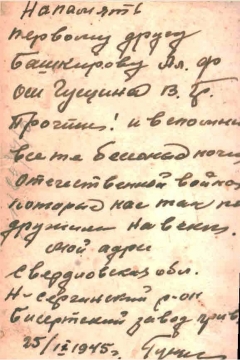 На память
первому другу
Башкирову Ал. Ф
от Гущина В. Гр.
Прочти! и вспомни
все те ночи
отечественной войны
которая нас так по
дружила на веки.
мой адрес
Свердловская обл.
Н-Сергинский р-он
Бисертский завод
25/IX 1945г.